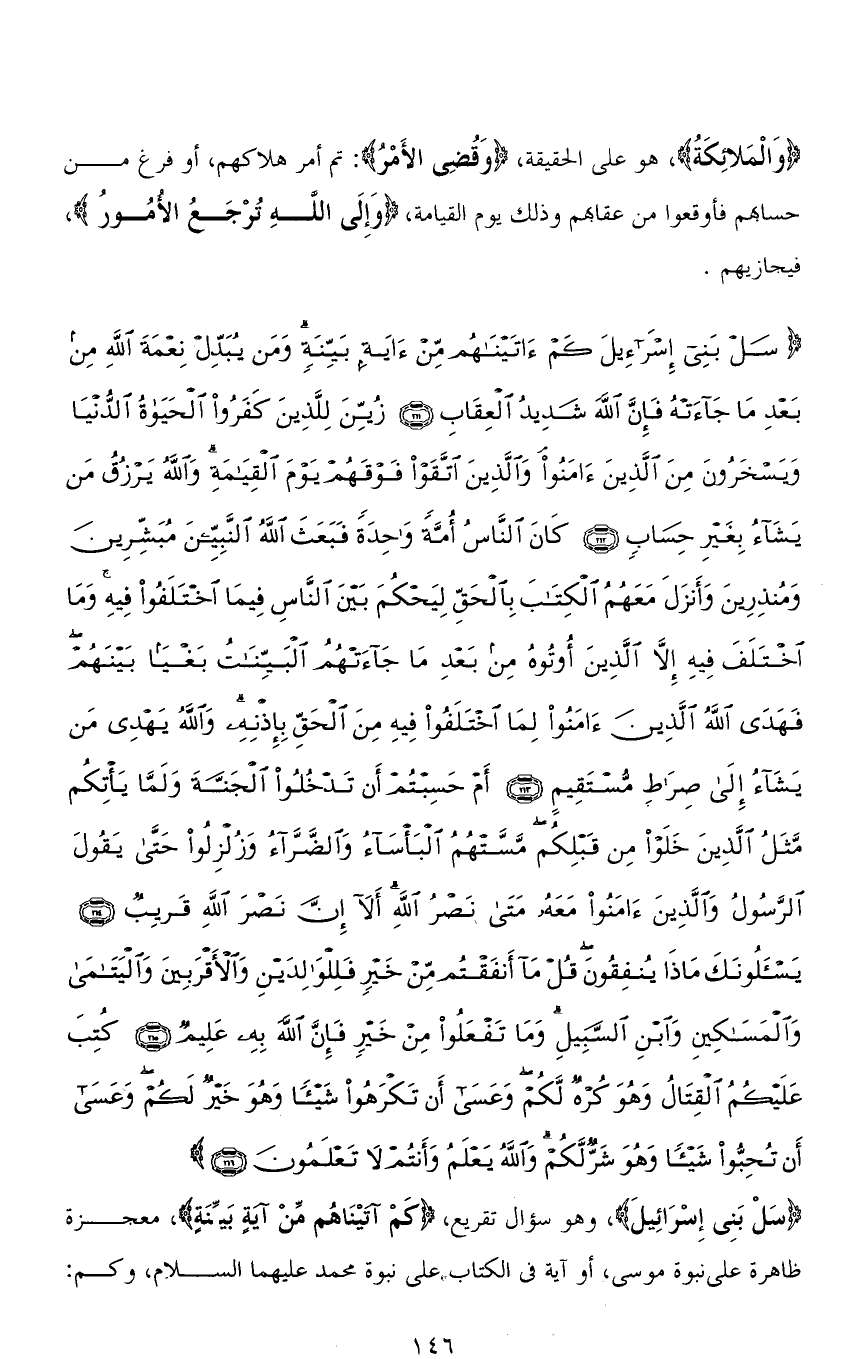 ﴿وَالْمَلائِكَةُ﴾، هو على الحقيقة، ﴿وَقُضِى الأَمْرُ﴾: تم أمر هلاكهم، أو فرغ مـــن
حسابهم فأوقعوا من عقابهم وذلك يوم القيامة، ﴿وَإِلَى اللَّـــهِ تُرْجَـــعُ الأُمُـــورُ ﴾،
فيحازيهم .
﴿ سَلْ بَنِىٓ إِسْرَٰٓءِيلَ كَمْ ءَاتَيْنَٰهُم مِّنْ ءَايَةٍۭ بَيِّنَةٍۗ وَمَن يُبَدِّلْ نِعْمَةَ ٱللَّهِ مِنۢ
بَعْدِ مَا جَآءَتْهُ فَإِنَّ ٱللَّهَ شَدِيدُ ٱلْعِقَابِ ﴿٢١١﴾ زُيِّنَ لِلَّذِينَ كَفَرُوا۟ ٱلْحَيَوٰةُ ٱلدُّنْيَا
وَيَسْخَرُونَ مِنَ ٱلَّذِينَ ءَامَنُوا۟ۘ وَٱلَّذِينَ ٱتَّقَوْا۟ فَوْقَهُمْ يَوْمَ ٱلْقِيَٰمَةِۗ وَٱللَّهُ يَرْزُقُ مَن
يَشَآءُ بِغَيْرِ حِسَابٍ ﴿٢١٢﴾ كَانَ ٱلنَّاسُ أُمَّةً وَٰحِدَةً فَبَعَثَ ٱللَّهُ ٱلنَّبِيِّۦنَ مُبَشِّرِينَ
وَمُنذِرِينَ وَأَنزَلَ مَعَهُمُ ٱلْكِتَٰبَ بِٱلْحَقِّ لِيَحْكُمَ بَيْنَ ٱلنَّاسِ فِيمَا ٱخْتَلَفُوا۟ فِيهِۚ وَمَا
ٱخْتَلَفَ فِيهِ إِلَّا ٱلَّذِينَ أُوتُوهُ مِنۢ بَعْدِ مَا جَآءَتْهُمُ ٱلْبَيِّنَٰتُ بَغْيًۢا بَيْنَهُمْۖ
فَهَدَى ٱللَّهُ ٱلَّذِينَ ءَامَنُوا۟ لِمَا ٱخْتَلَفُوا۟ فِيهِ مِنَ ٱلْحَقِّ بِإِذْنِهِۦۗ وَٱللَّهُ يَهْدِى مَن
يَشَآءُ إِلَىٰ صِرَٰطٍ مُّسْتَقِيمٍ ﴿٢١٣﴾ أَمْ حَسِبْتُمْ أَن تَدْخُلُوا۟ ٱلْجَنَّةَ وَلَمَّا يَأْتِكُم
مَّثَلُ ٱلَّذِينَ خَلَوْا۟ مِن قَبْلِكُمۖ مَّسَّتْهُمُ ٱلْبَأْسَآءُ وَٱلضَّرَّآءُ وَزُلْزِلُوا۟ حَتَّىٰ يَقُولَ
ٱلرَّسُولُ وَٱلَّذِينَ ءَامَنُوا۟ مَعَهُۥ مَتَىٰ نَصْرُ ٱللَّهِۗ أَلَآ إِنَّ نَصْرَ ٱللَّهِ قَرِيبٌ ﴿٢١٤﴾
يَسْـَٔلُونَكَ مَاذَا يُنفِقُونَۖ قُلْ مَآ أَنفَقْتُم مِّنْ خَيْرٍ فَلِلْوَٰلِدَيْنِ وَٱلْأَقْرَبِينَ وَٱلْيَتَٰمَىٰ
وَٱلْمَسَٰكِينِ وَٱبْنِ ٱلسَّبِيلِۗ وَمَا تَفْعَلُوا۟ مِنْ خَيْرٍ فَإِنَّ ٱللَّهَ بِهِۦ عَلِيمٌ ﴿٢١٥﴾ كُتِبَ
عَلَيْكُمُ ٱلْقِتَالُ وَهُوَ كُرْهٌ لَّكُمْۖ وَعَسَىٰٓ أَن تَكْرَهُوا۟ شَيْـًٔا وَهُوَ خَيْرٌ لَّكُمْۖ وَعَسَىٰٓ
أَن تُحِبُّوا۟ شَيْـًٔا وَهُوَ شَرٌّ لَّكُمْۗ وَٱللَّهُ يَعْلَمُ وَأَنتُمْ لَا تَعْلَمُونَ ﴿٢١٦﴾ ﴾
﴿سَلْ بَنِى إِسْرَائِيلَ﴾، وهو سؤال تقريع، ﴿كَمْ آتَيْنَاهُم مِّنْ آيَةٍ بَيِّنَةٍ﴾، معجـــزة
ظاهرة على نبوة موسى، أو آية فى الكتاب على نبوة محمد عليهما الســـلام، وكـــم:
١٤٦